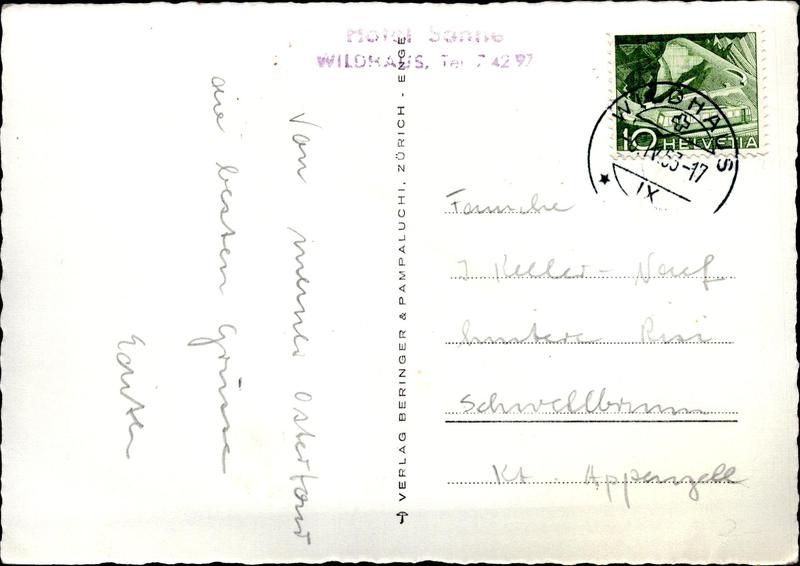 Hotel Sonne
WILDHAUS, Tel. 7 42 97
Von meiner Ostertour
die besten Grüsse
VERLAG BERINGER & PAMPALUCHI, ZÜRICH - ENGE
10 HELVETIA
WILDHAUS
IV.53-17
IX
Familie
J Keller-Naef
hintere Risi
Schwellbrunn
Kt. Appenzell